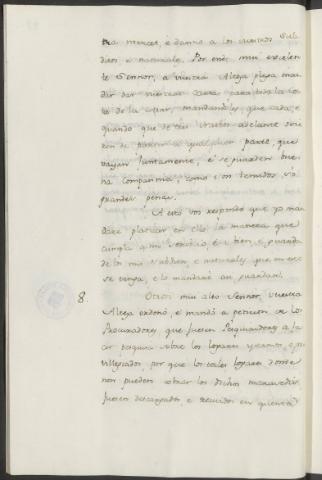 tra merced, e danno a los vuestros Sub
ditos e naturales. Por ende mui excelen
te Sennor, a vuestra Alteza plega man
dar dar vuestras cartas para toda la cos
ta de la mar, mandandoles, que cada, e
quando que de los Puertos adelante ovie
ren de partir a qualquier parte, que
vayan juntamente, e se guarden bue
na compannia, como son tenudos so
grandes penas.
A esto vos respondo que yo man
dare platicar en ello la manera que
cumpla a mi servicio, e a bien, e guarda
de los mis subditos, e naturales que en ese
se tenga, e lo mandaré asi guardar.
8. Otrosi mui alto Sennor, vuestra
Alteza ordenó, e mandó a peticion de los
Procuradores que fuesen Pesquisidores a fa
cer pesquisa sobre los logares yermos, e pri
villejiados, por que los tales logares donde
non pueden cobrar los dichos maravedis
fuesen descargados e recividos en quenta